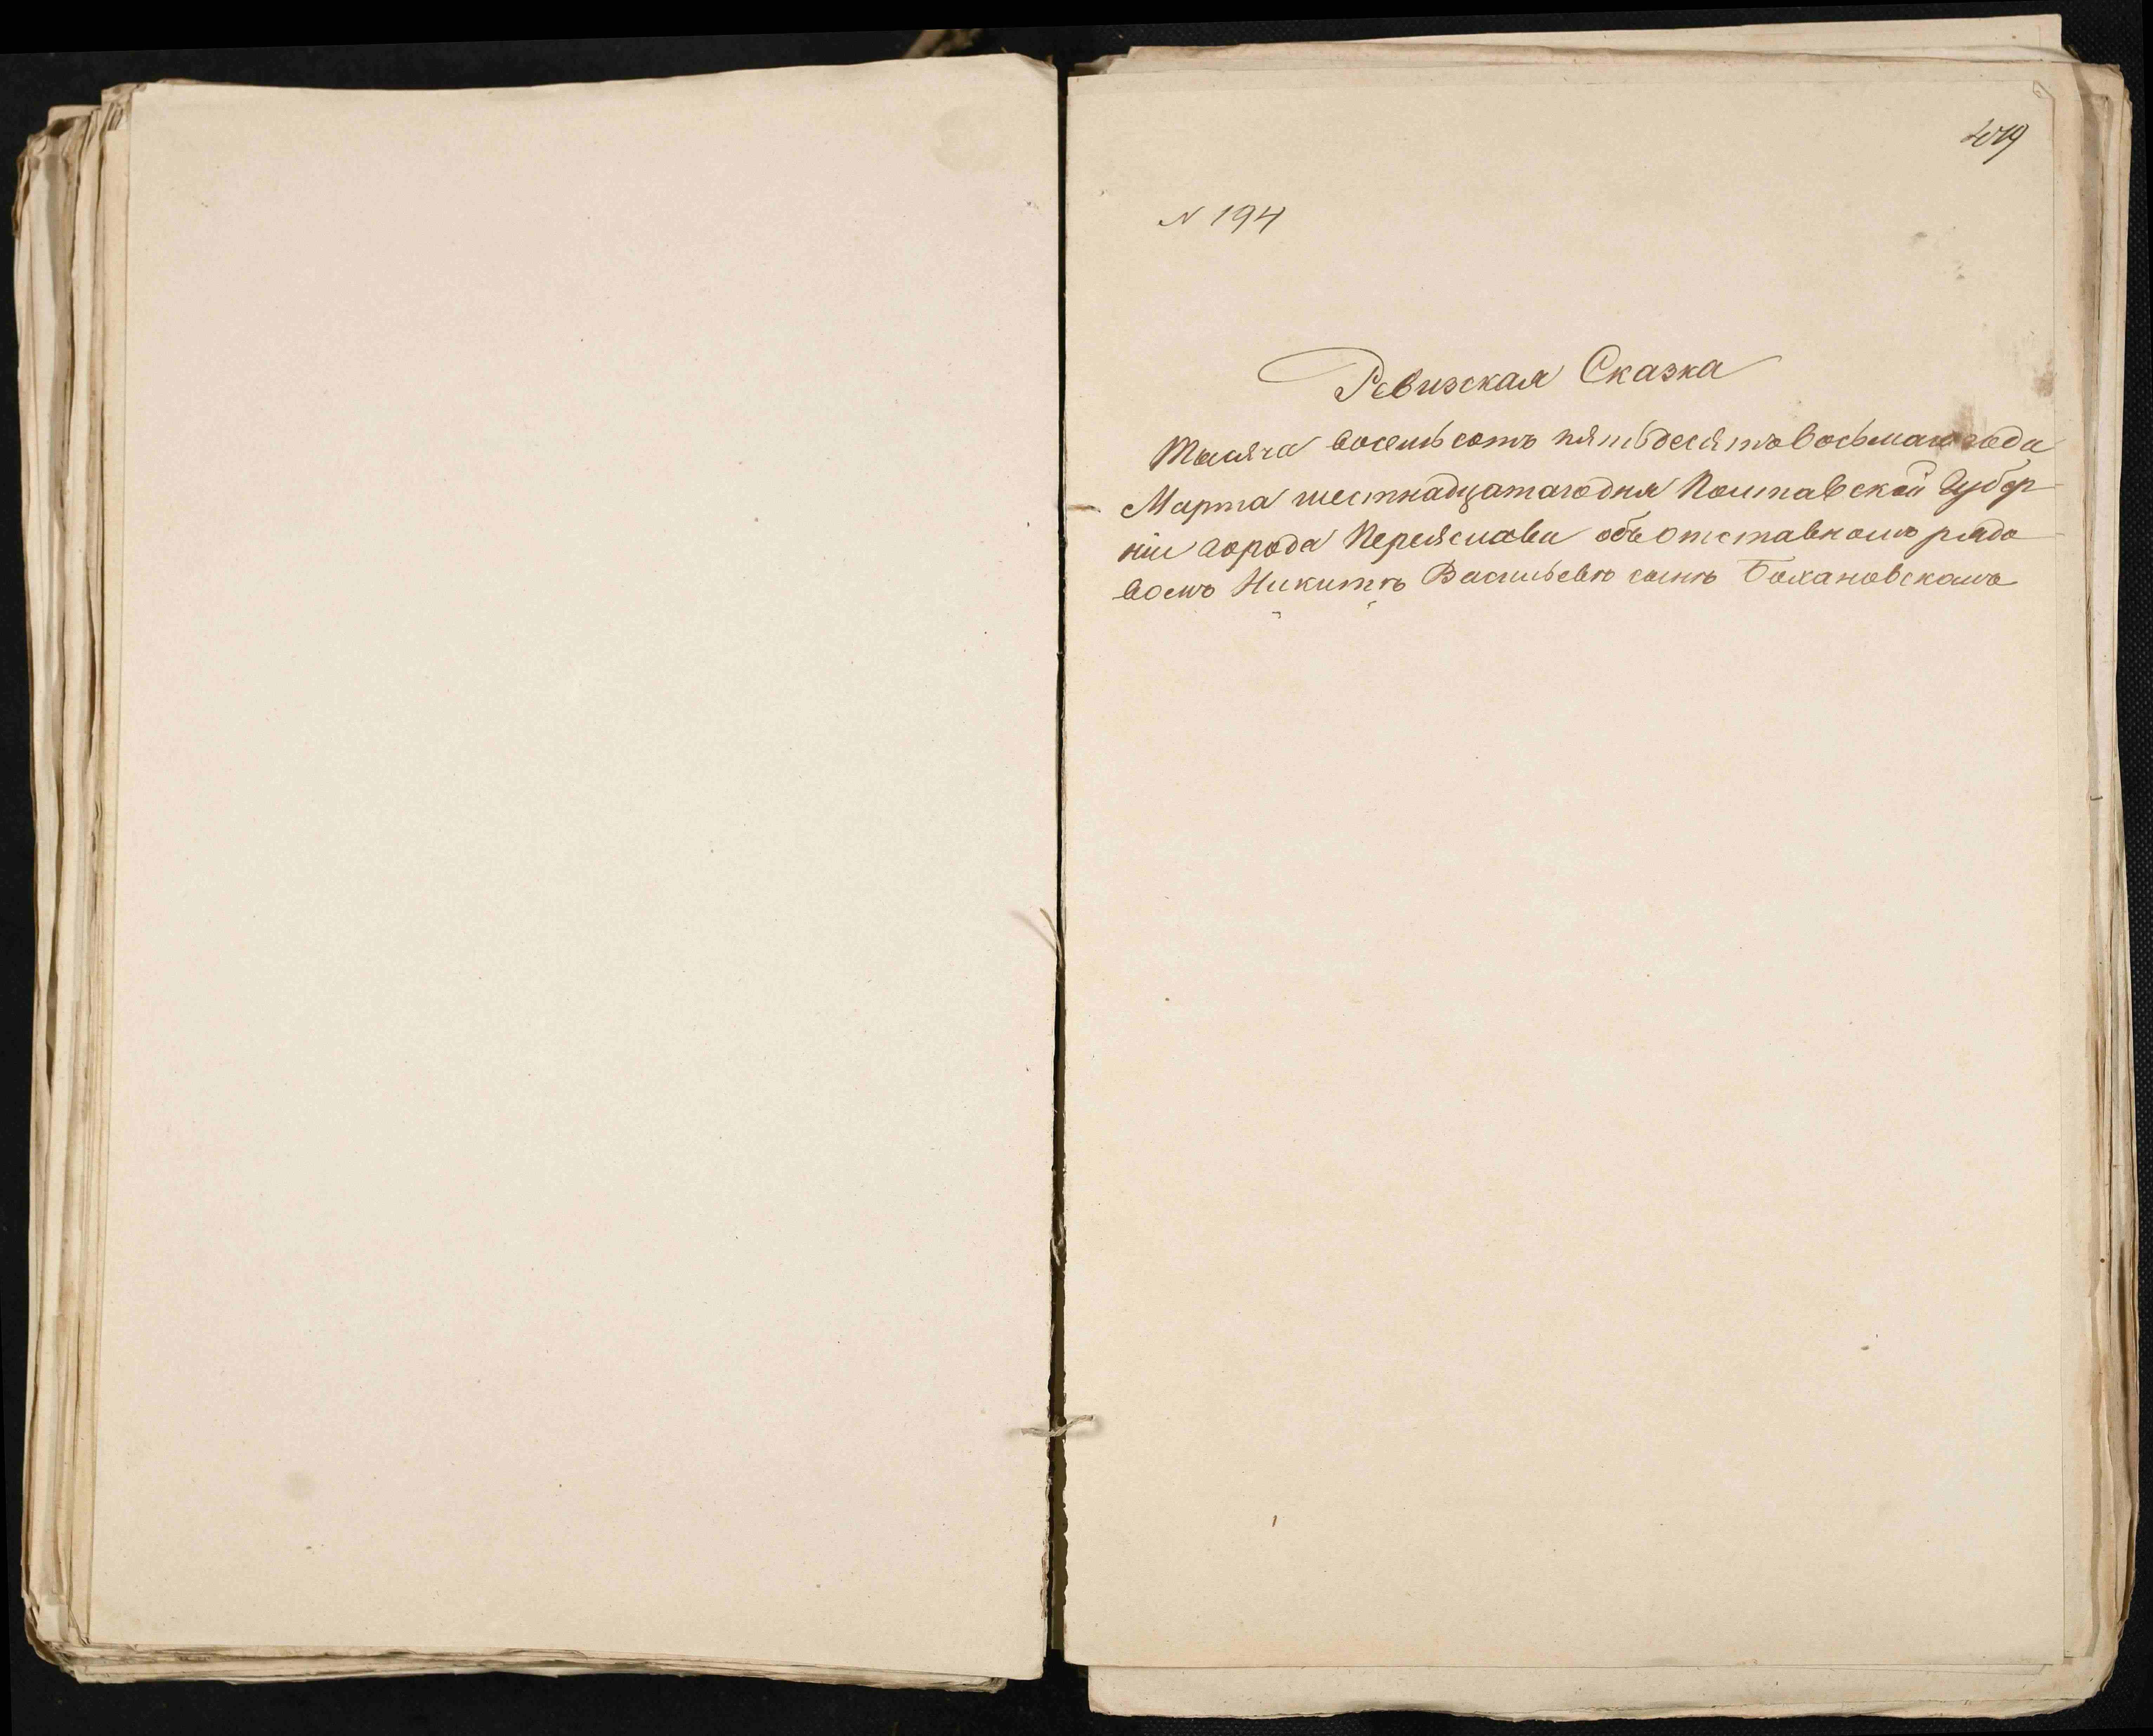 N 194
Ревизская Сказка
Тысяча восемьсотъ пятьдесятъ восьмаго года
Марта шестнадцатаго дня Полтавской Губер
ніи города Переяслава объ отставномъ рядо
вомъ Никитѣ Васильевѣ сынѣ Бохановскомъ